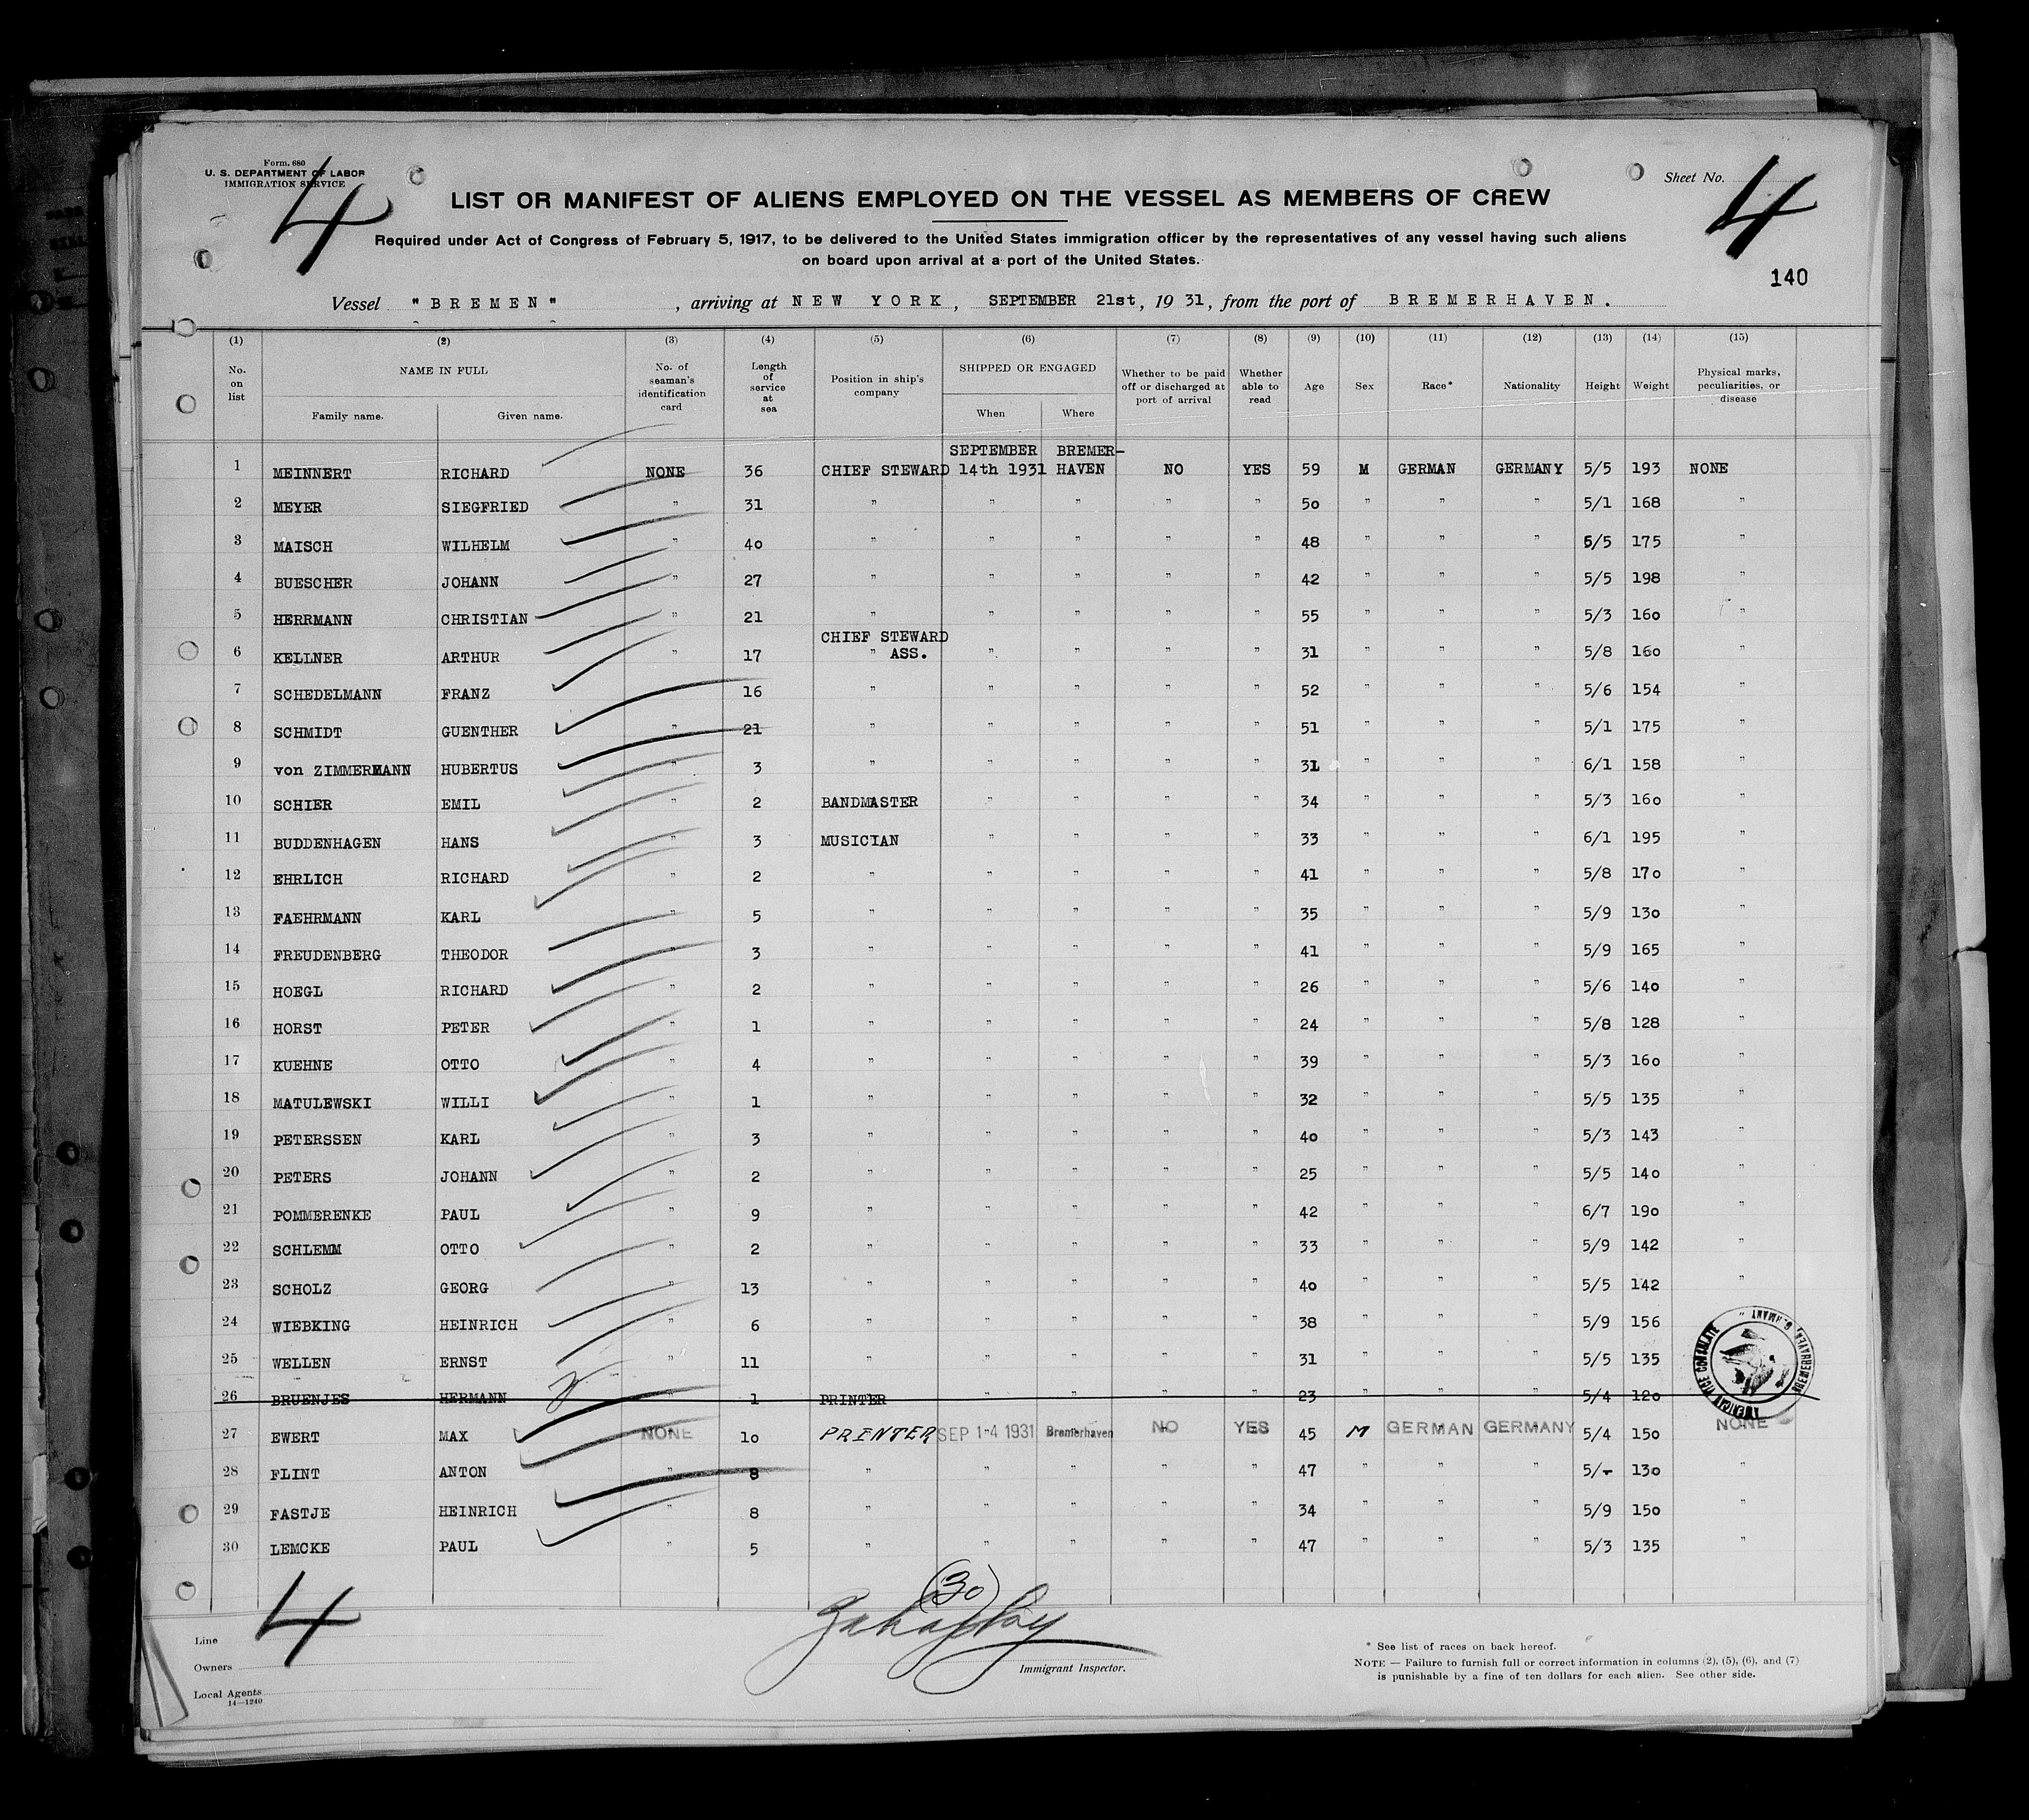 Form. 680
U. S. DEPARTMENT OF LABOR
IMMIGRATION SERVICE
4
Sheet No. 4
LIST OR MANIFEST OF ALIENS EMPLOYED ON THE VESSEL AS MEMBERS OF CREW
Required under Act of Congress of February 5, 1917, to be delivered to the United States immigration officer by the representatives of any vessel having such aliens
on board upon arrival at a port of the United States.
140
Vessel "BREMEN", arriving at NEW YORK, SEPTEMBER 21st, 19 31, from the port of BREMERHAVEN.
(1) (2) (3) (4) (5) (6) (7) (8) (9) (10) (11) (12) (13) (14) (15)
No. on list NAME IN FULL Family name. Given name. No. of seaman's identification card Length of service at sea Position in ship's company SHIPPED OR ENGAGED When Where Whether to be paid off or discharged at port of arrival Whether able to read Age Sex Race* Nationality Height Weight Physical marks, peculiarities, or disease
SEPTEMBER BREMER-
1 MEINNERT RICHARD NONE 36 CHIEF STEWARD 14th 1931 HAVEN NO YES 59 M GERMAN GERMANY 5/5 193 NONE
2 MEYER SIEGFRIED " 31 " " " " " 50 " " " 5/1 168 "
3 MAISCH WILHELM " 40 " " " " " 48 " " " 5/5 175 "
4 BUESCHER JOHANN " 27 " " " " " 42 " " " 5/5 198 "
5 HERRMANN CHRISTIAN " 21 " " " " " 55 " " " 5/3 160 "
CHIEF STEWARD
6 KELLNER ARTHUR " 17 " ASS. " " " " 31 " " " 5/8 160 "
7 SCHEDELMANN FRANZ 16 " " " " " 52 " " " 5/6 154 "
8 SCHMIDT GUENTHER " 21 " " " " " 51 " " " 5/1 175 "
9 von ZIMMERMANN HUBERTUS " 3 " " " " " 31 " " " 6/1 158 "
10 SCHIER EMIL " 2 BANDMASTER " " " " 34 " " " 5/3 160 "
11 BUDDENHAGEN HANS " 3 MUSICIAN " " " " 33 " " " 6/1 195 "
12 EHRLICH RICHARD " 2 " " " " " 41 " " " 5/8 170 "
13 FAEHRMANN KARL " 5 " " " " " 35 " " " 5/9 130 "
14 FREUDENBERG THEODOR " 3 " " " " " 41 " " " 5/9 165 "
15 HOEGL RICHARD " 2 " " " " " 26 " " " 5/6 140 "
16 HORST PETER " 1 " " " " " 24 " " " 5/8 128 "
17 KUEHNE OTTO " 4 " " " " " 39 " " " 5/3 160 "
18 MATULEWSKI WILLI " 1 " " " " " 32 " " " 5/5 135 "
19 PETERSSEN KARL " 3 " " " " " 40 " " " 5/3 143 "
20 PETERS JOHANN " 2 " " " " " 25 " " " 5/5 140 "
21 POMMERENKE PAUL " 9 " " " " " 42 " " " 6/7 190 "
22 SCHLEMM OTTO " 2 " " " " " 33 " " " 5/9 142 "
23 SCHOLZ GEORG " 13 " " " " " 40 " " " 5/5 142 "
24 WIEBKING HEINRICH " 6 " " " " " 38 " " " 5/9 156
25 WELLEN ERNST " 11 " " " " " 31 " " " 5/5 135
26 BRUENJES HERMANN " 1 PRINTER " " " " 23 " " " 5/4 120
AMERICAN VICE CONSULATE BREMERHAVEN, GERMANY
27 EWERT MAX NONE 10 PRINTER SEP 14 1931 Bremerhaven NO YES 45 M GERMAN GERMANY 5/4 150 NONE
28 FLINT ANTON " 8 " " " " " 47 " " " 5/- 130 "
29 FASTJE HEINRICH " 8 " " " " " 34 " " " 5/9 150 "
30 LEMCKE PAUL " 5 " " " " " 47 " " " 5/3 135 "
4
(30)
Line
Owners
Local Agents
14—1240
Immigrant Inspector.
* See list of races on back hereof.
NOTE — Failure to furnish full or correct information in columns (2), (5), (6), and (7)
is punishable by a fine of ten dollars for each alien. See other side.